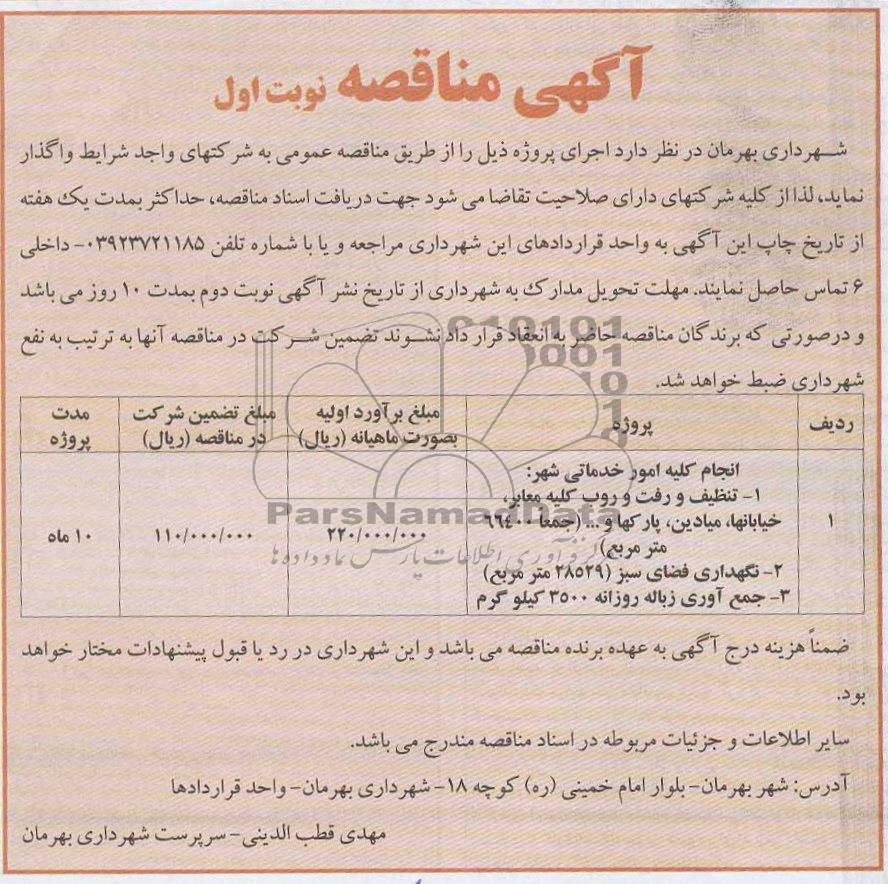 آگهی مناقصه نوبت اول
شهرداری بهرمان در نظر دارد اجرای پروژه ذیل را از طریق مناقصه عمومی به شرکتهای واجد شرایط واگذار
نماید، لذا از کلیه شرکتهای دارای صلاحیت تقاضا می شود جهت دریافت اسناد مناقصه، حداکثر بمدت یک هفته
از تاریخ چاپ این آگهی به واحد قراردادهای این شهرداری مراجعه و یا با شماره تلفن ۰۳۹۲۳۷۲۱۱۸۵- داخلی
۶ تماس حاصل نمایند. مهلت تحویل مدارک به شهرداری از تاریخ نشر آگهی نوبت دوم بمدت ۱۰ روز می باشد
و درصورتی که برندگان مناقصه حاضر به انعقاد قرار داد نشوند تضمین شرکت در مناقصه آنها به ترتیب به نفع
شهرداری ضبط خواهد شد.
ردیف
پروژه
مبلغ برآورد اولیه
بصورت ماهیانه (ریال)
مبلغ تضمین شرکت
در مناقصه (ریال)
مدت
پروژه
۱
انجام کلیه امور خدماتی شهر:
۱- تنظیف و رفت و روب کلیه معابر،
خیابانها، میادین، پارکها و ... (جمعا ۶۶۴۰۰
متر مربع)
۲- نگهداری فضای سبز (۲۸۵۲۹ متر مربع)
۳- جمع آوری زباله روزانه ۳۵۰۰ کیلو گرم
۲۲۰/۰۰۰/۰۰۰
۱۱۰/۰۰۰/۰۰۰
۱۰ ماه
ParsNamadData
گردآوری اطلاعات پارس نماد داده ها
ضمناً هزینه درج آگهی به عهده برنده مناقصه می باشد و این شهرداری در رد یا قبول پیشنهادات مختار خواهد
بود.
سایر اطلاعات و جزئیات مربوطه در اسناد مناقصه مندرج می باشد.
آدرس: شهر بهرمان- بلوار امام خمینی (ره) کوچه ۱۸- شهرداری بهرمان- واحد قراردادها
مهدی قطب الدینی- سرپرست شهرداری بهرمان